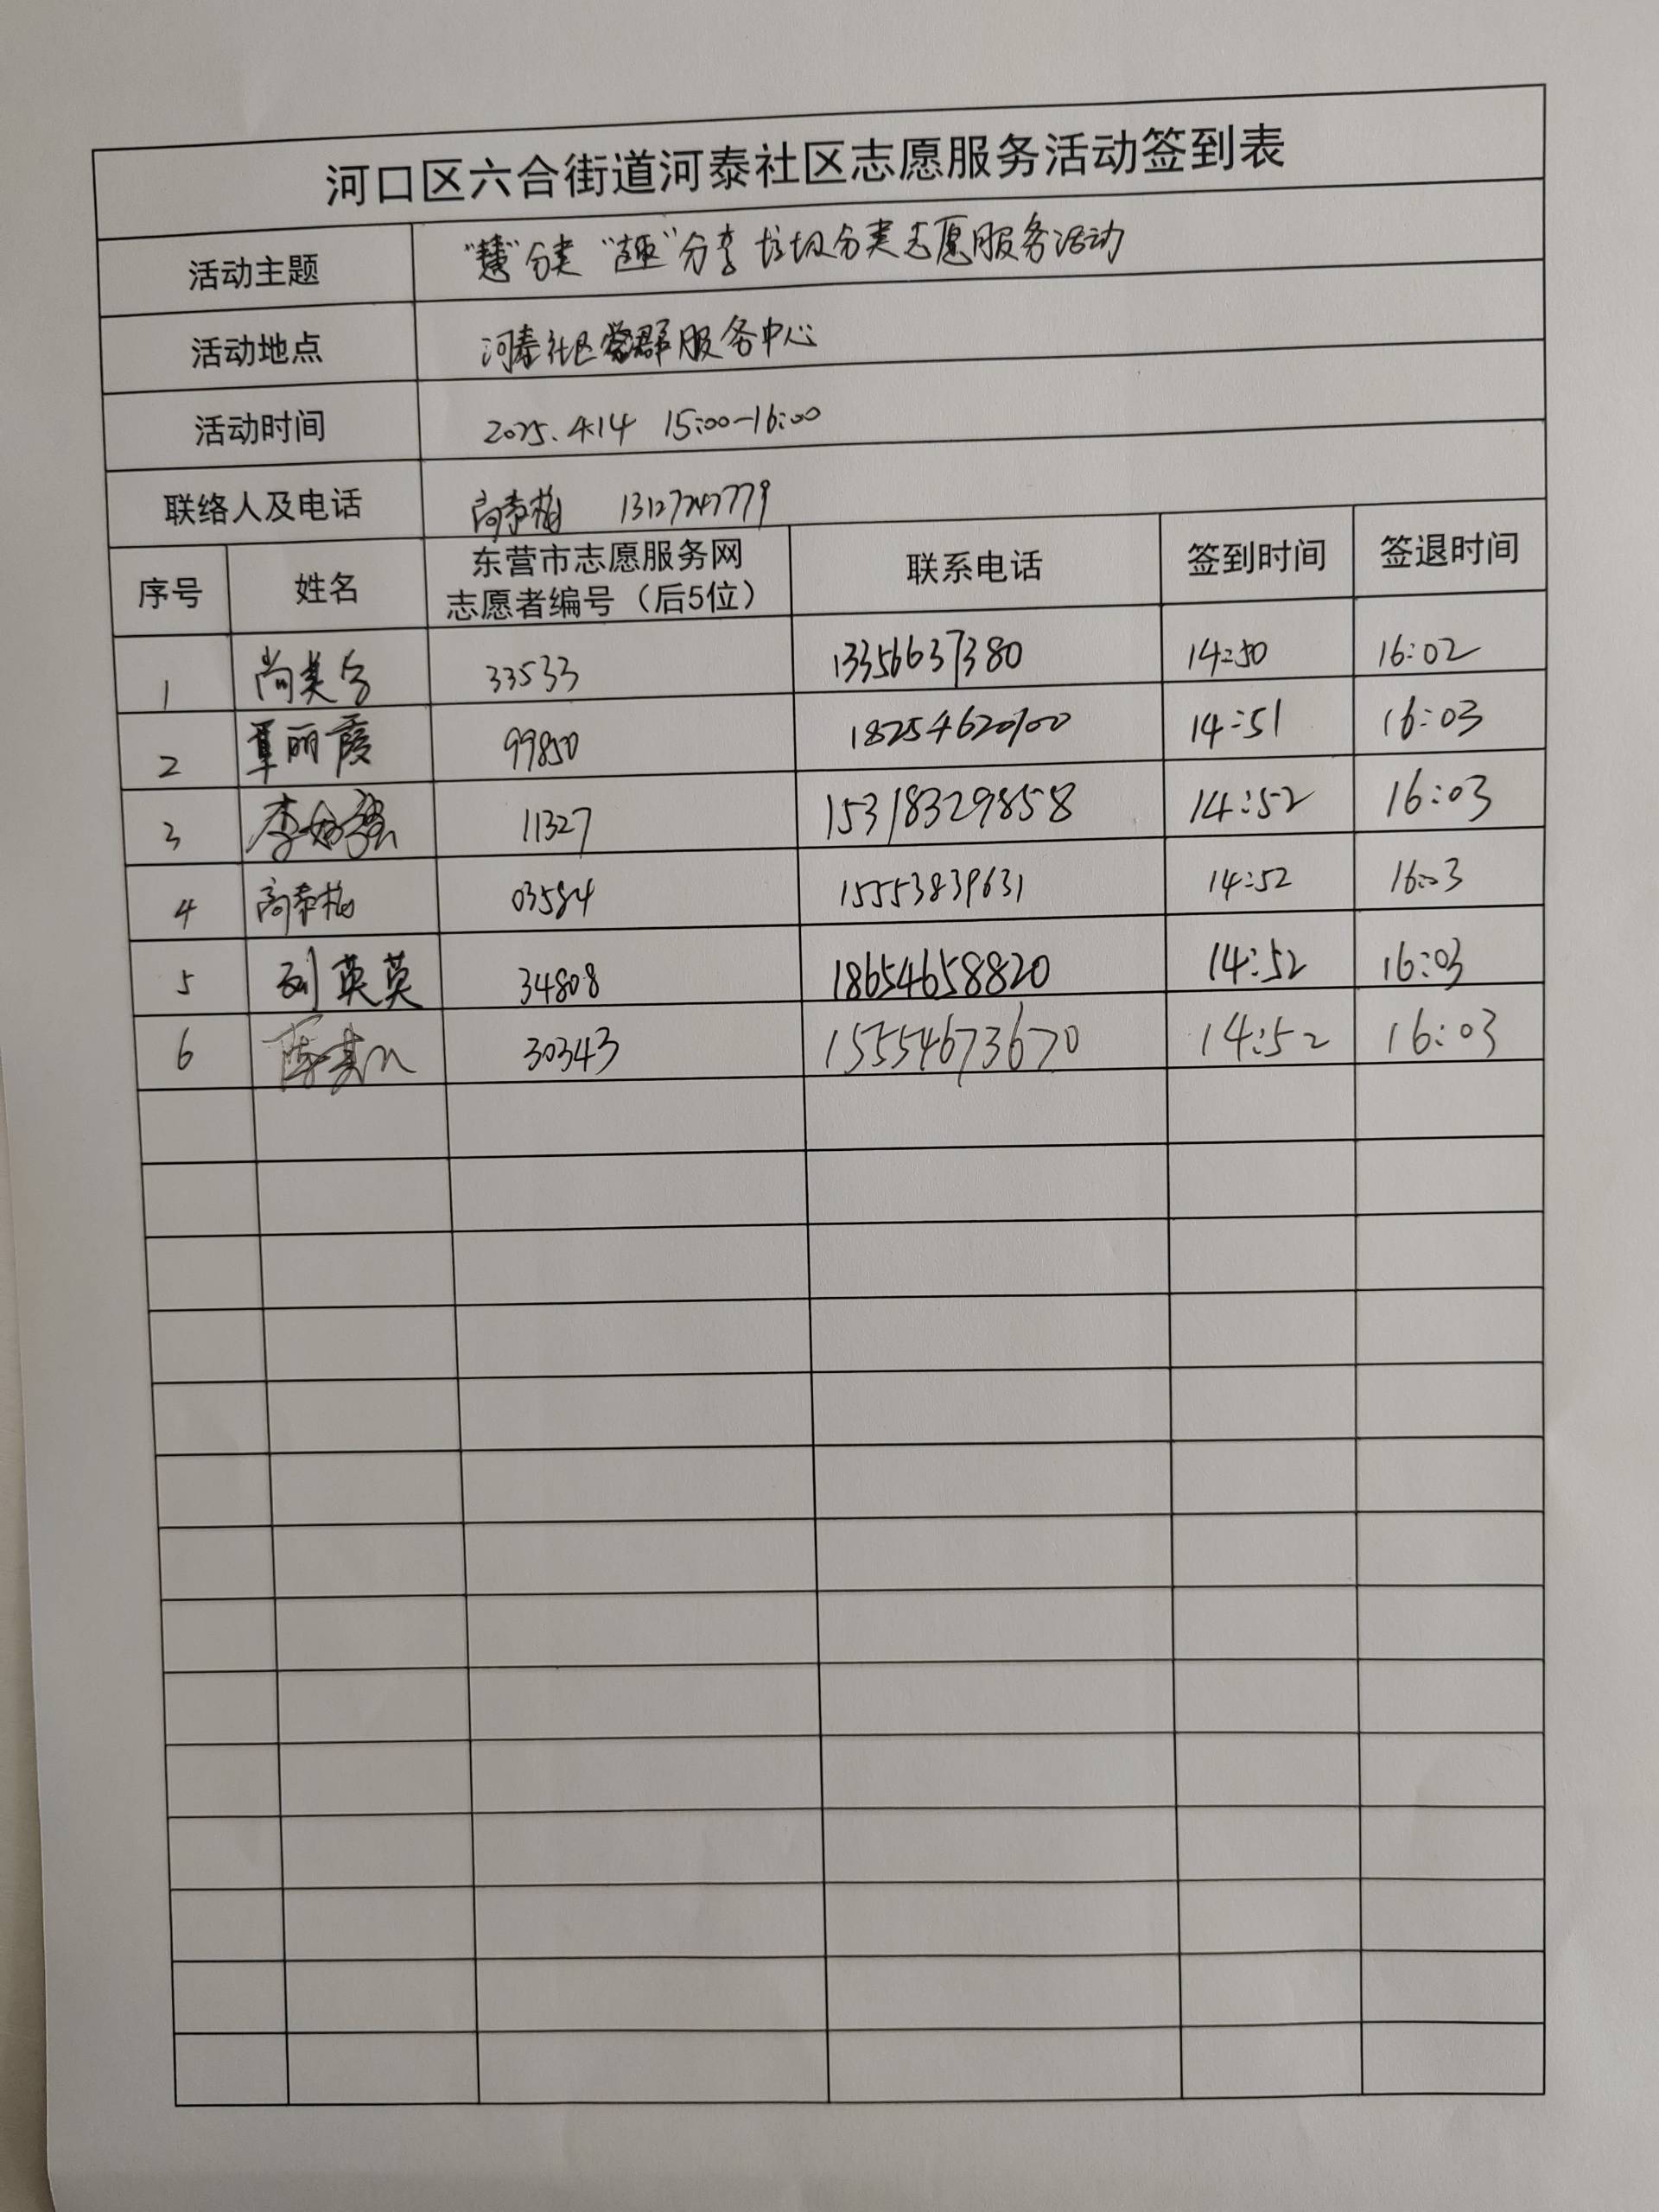 河口区六合街道河泰社区志愿服务活动签到表
活动主题 “慧”分类 “趣”分享 垃圾分类志愿服务活动
活动地点 河泰社区党群服务中心
活动时间 2025.4.14 15:00-16:00
联络人及电话 高春梅 13127247779
序号 姓名 东营市志愿服务网志愿者编号（后5位） 联系电话 签到时间 签退时间
1 尚美 33533 13356637380 14:50 16:02
2 覃丽霞 99850 18254620700 14:51 16:03
3 李 11327 15318329858 14:52 16:03
4 高春梅 03584 15553839631 14:52 16:03
5 刘英英 34808 18654658820 14:52 16:03
6 陈 30343 15554673670 14:52 16:03